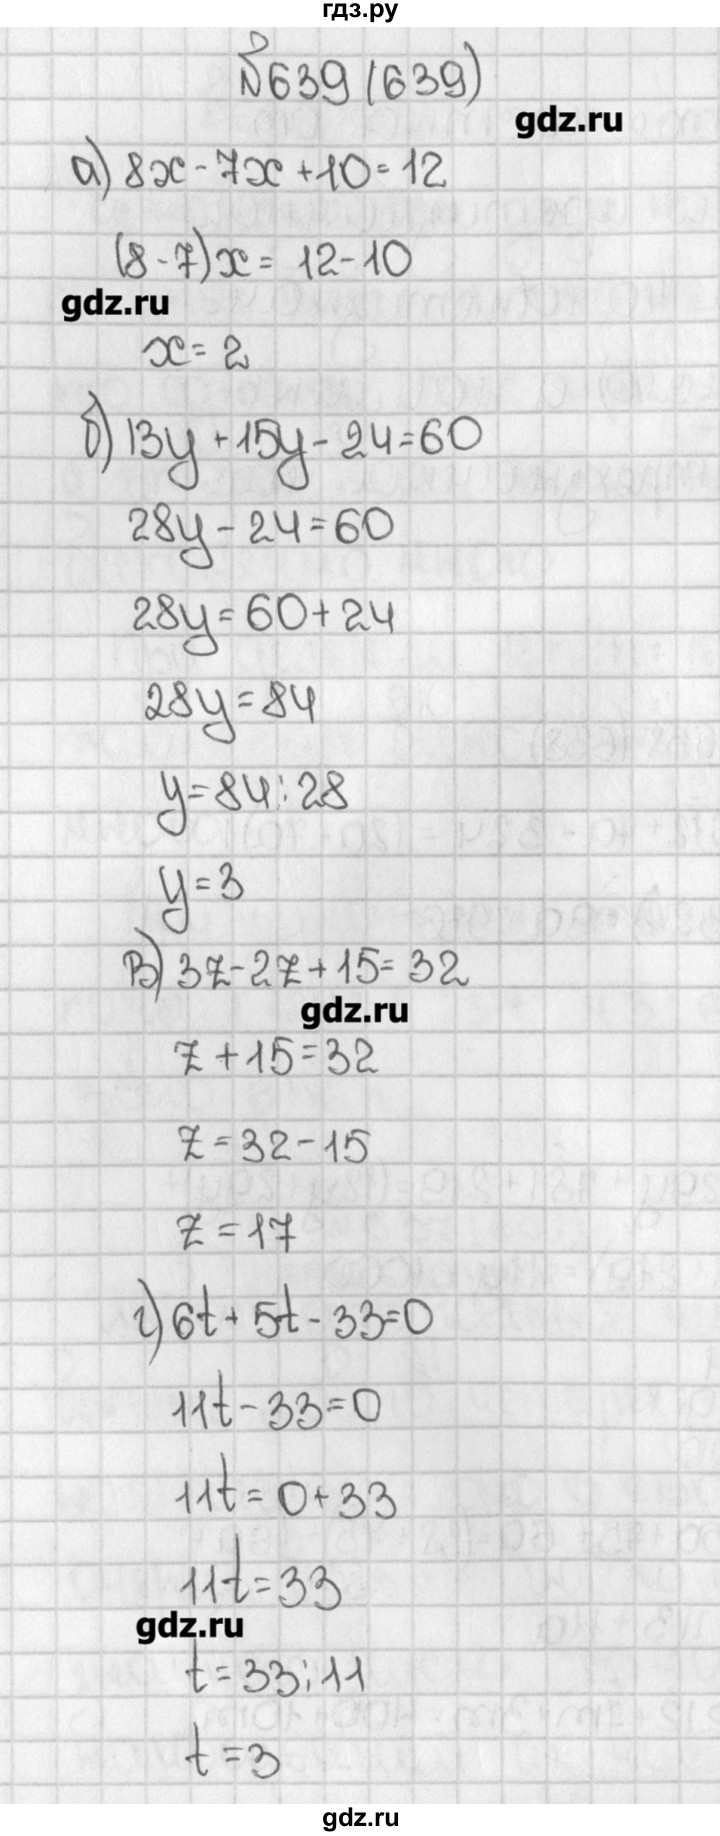 гдз.ру
№639 (639)
gdz.ru
а) 8x - 7x + 10 = 12
(8 - 7)x = 12 - 10
gdz.ru
x = 2
б) 13y + 15y - 24 = 60
28y - 24 = 60
28y = 60 + 24
28y = 84
y = 84 : 28
y = 3
в) 3z - 2z + 15 = 32
gdz.ru
z + 15 = 32
z = 32 - 15
z = 17
г) 6t + 5t - 33 = 0
11t - 33 = 0
11t = 0 + 33
11t = 33
gdz.ru
t = 33 : 11
t = 3
gdz.ru